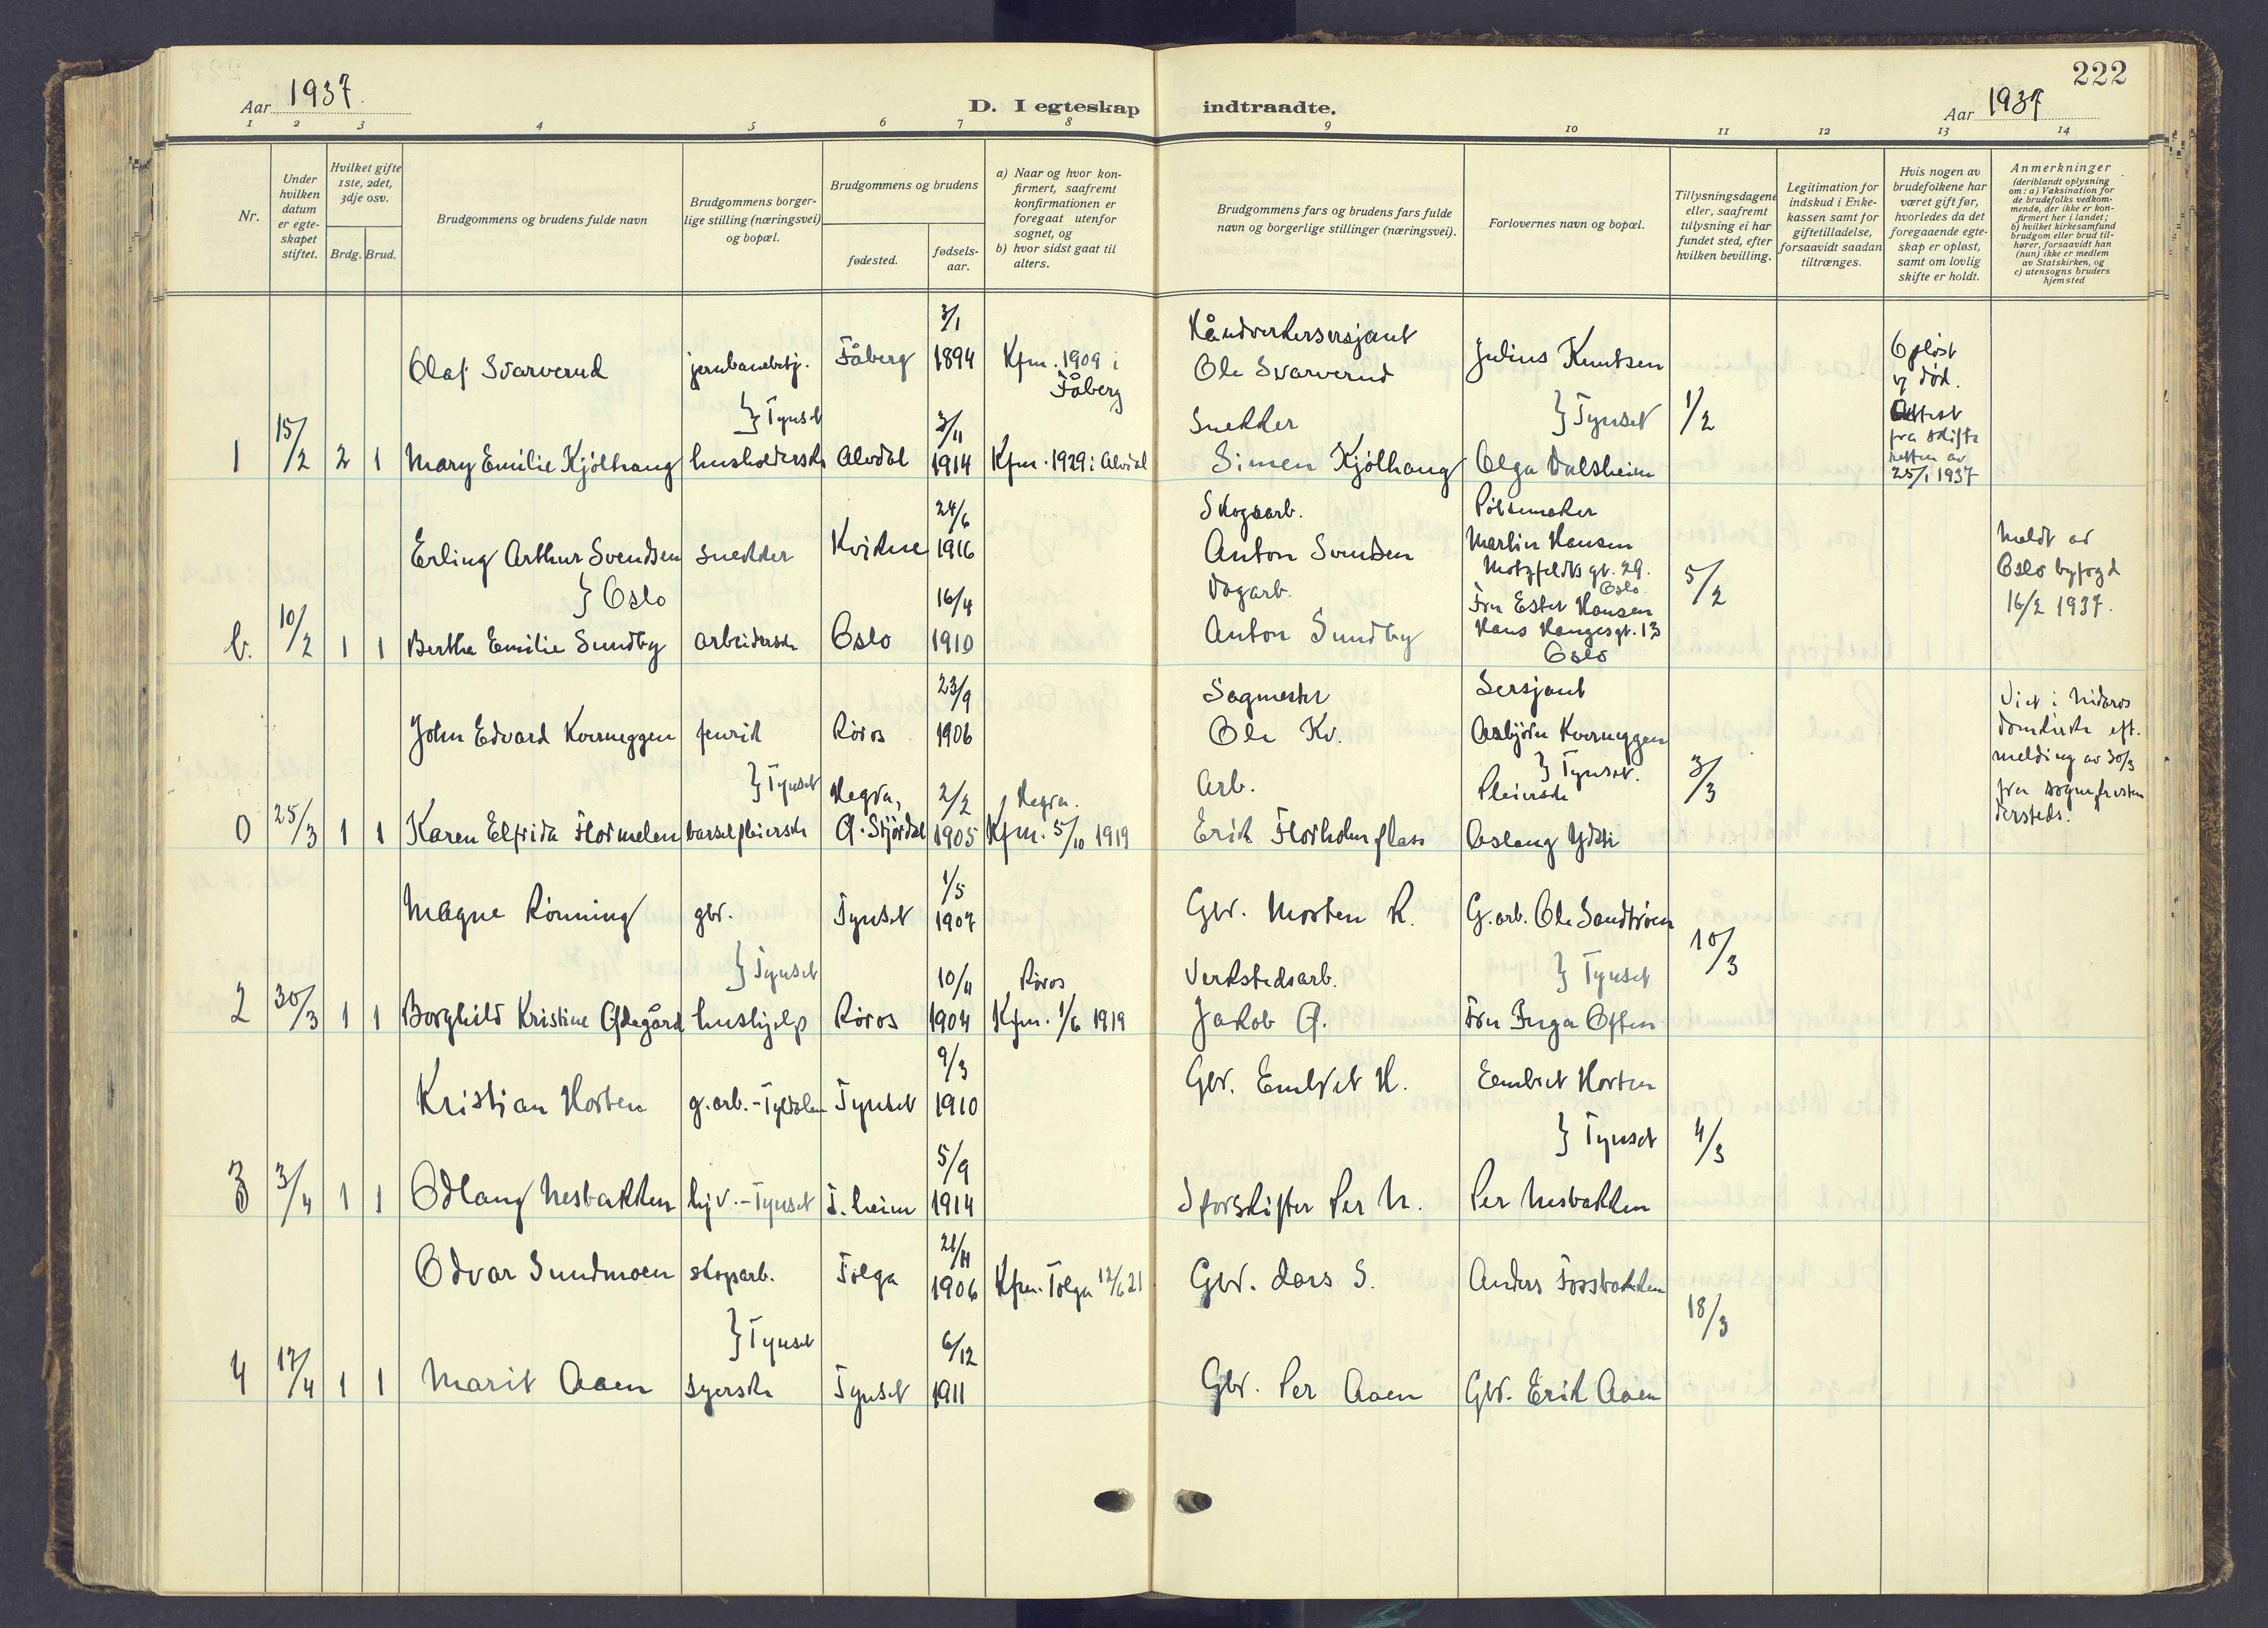 222
Aar 1937.
D. I egteskap indtraadte.
Aar 1937
1 2 3 4 5 6 7 8 9 10 11 12 13 14
Nr.
Under hvilken datum er egteskapet stiftet.
Hvilket gifte 1ste, 2det, 3dje osv.
Brdg. Brud.
Brudgommens og brudens fulde navn
Brudgommens borgerlige stilling (næringsvei) og bopæl.
Brudgommens og brudens
fødested.
fødselsaar.
a) Naar og hvor konfirmert, saafremt konfirmationen er foregaat utenfor sognet, og
b) hvor sidst gaat til alters.
Brudgommens fars og brudens fars fulde navn og borgerlige stillinger (næringsvei).
Forlovernes navn og bopæl.
Tillysningsdagene eller, saafremt tillysning ei har fundet sted, efter hvilken bevilling.
Legitimation for indskud i Enkekassen samt for giftetilladelse, forsaavidt saadan tiltrænges.
Hvis nogen av brudefolkene har været gift før, hvorledes da det foregaaende egteskap er opløst, samt om lovlig skifte er holdt.
Anmerkninger
(deriblandt oplysning om: a) Vaksination for de brudefolks vedkommende, der ikke er konfirmert her i landet; b) hvilket kirkesamfund brudgom eller brud tilhører, forsaavidt han (hun) ikke er medlem av Statskirken, og c) utensogns bruders hjemsted
Olaf Svarverud jernbanebetj. Fåberg 3/1 1894 Kfm. 1909 i Fåberg
Håndverkersersjant Ole Svarverud
Julius Knutsen
Opløst v. død. Attest fra skifteretten av 25/1 1937
} Tynset
1 15/2 2 1 Mary Emilie Kjölhaug husholderske Alvdal 3/11 1914 Kfm. 1929 i Alvdal
Snekker Simen Kjölhaug
} Tynset 1/2
Olga Dalsheim
Erling Arthur Svendsen snekker Kvikne 24/6 1916
Skogsarb. Anton Svendsen
Pölsemaker Martin Hansen Motzfeldts gt. 29. Oslo
Meldt av Oslo byfogd 16/2 1937.
} Oslo
b. 10/2 1 1 Berthe Emilie Sundby arbeiderske Oslo 16/4 1910
Dagarb. Anton Sundby
Fru Ester Hansen Hans Haugesgt. 13 Oslo
5/2
John Edvard Kverneggen fenrik Röros 23/9 1906
Sagmester Ole Kv.
Sersjant Asbjörn Kverneggen
} Tynset.
Viet i Nidaros domkirke eft. melding av 30/3 fra sognepresten dersteds.
} Tynset
0 25/3 1 1 Karen Elfrida Flormelen barselpleierske Hegra, Ø. Stjördal 2/2 1905 Hegra. Kfm. 5/10 1919
Arb. Erik Florholmflass
Pleierske Aslaug Ydsti
3/3
Magne Rönning gbr. Tynset 1/5 1907
Gbr. Morten R.
G.arb. Ole Sandtröen
} Tynset
2 30/3 1 1 Borghild Kristine Ødegård hushjelp Röros 10/11 1904 Röros Kfm. 1/6 1919
Verkstedsarb. Jakob Ø.
} Tynset 10/3
Fru Inga Often
Kristian Horten g.arb. - Tyldalen Tynset 9/3 1910
Gbr. Embret H.
Embret Horten
} Tynset 4/3
3 3/4 1 1 Odlaug Nesbakken hjv. - Tynset T.heim 5/9 1914
Sporskifter Per N.
Per Nesbakken
Odvar Sundmoen skogsarb. Tolga 21/11 1906 Kfm. Tolga 12/6 21
Gbr. Lars S.
Anders Fossbakken
} Tynset
18/3
4 17/4 1 1 Marit Aaen syerske Tynset 6/12 1911
Gbr. Per Aaen
Gbr. Erik Aaen